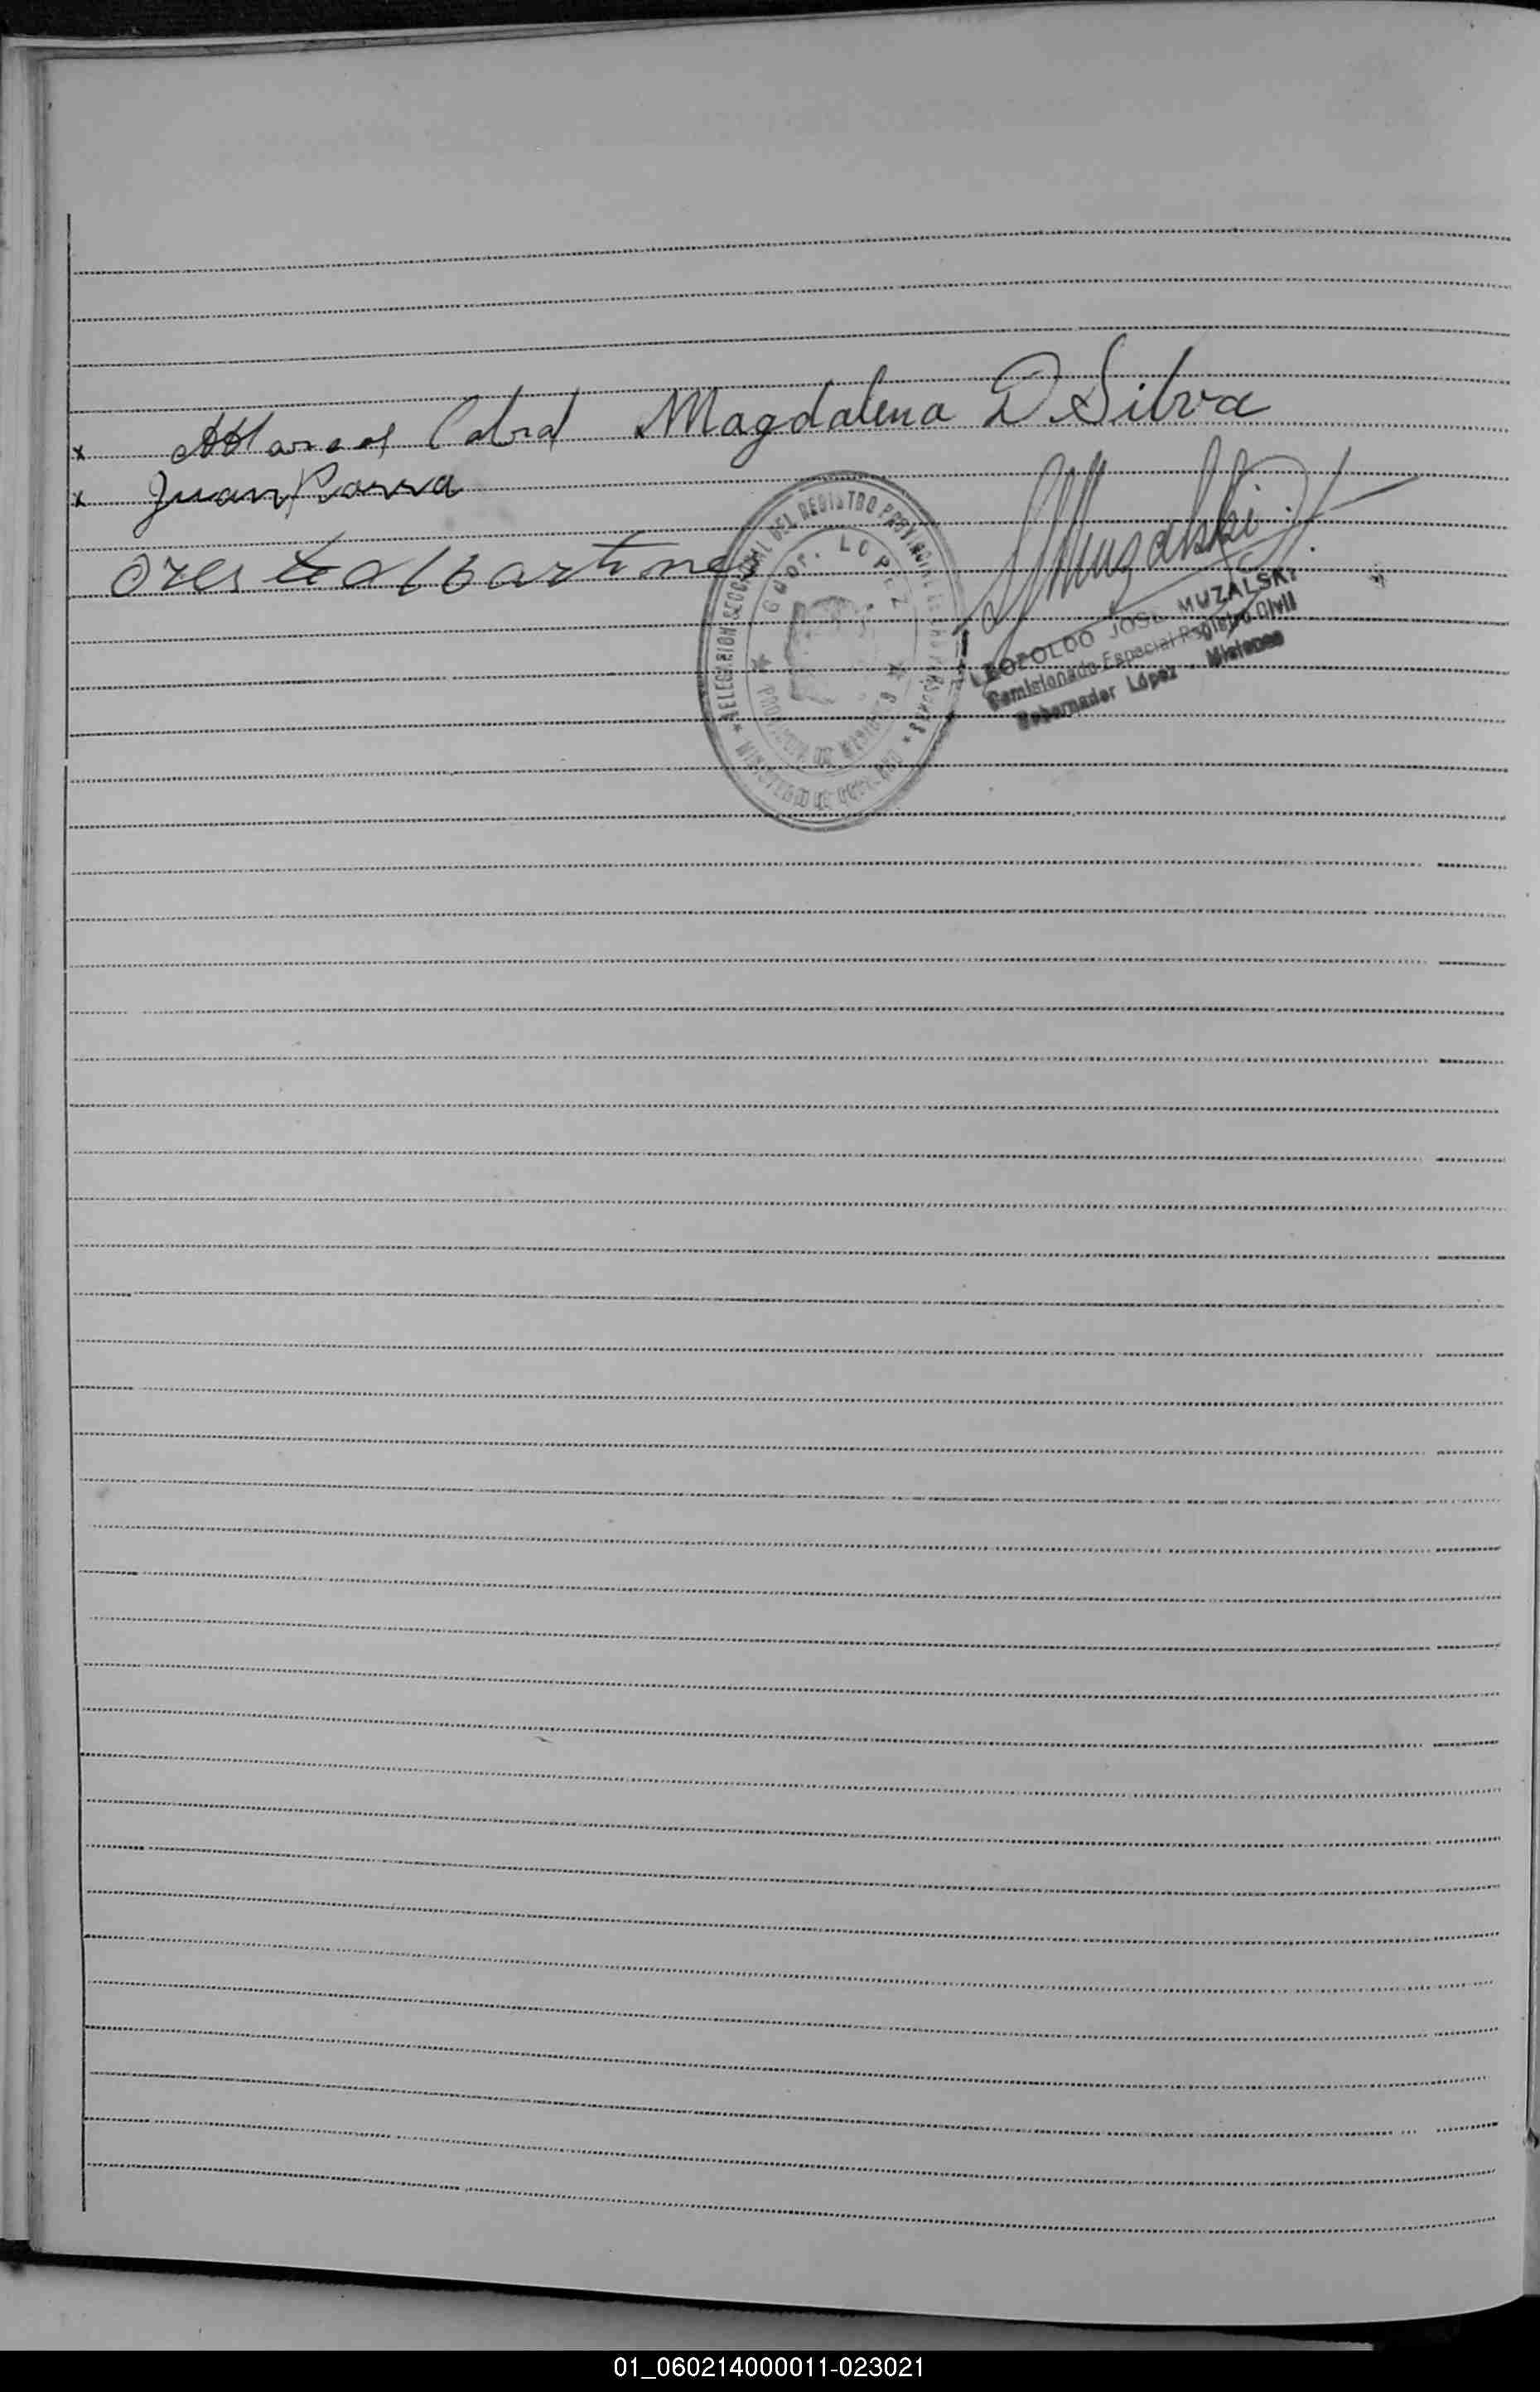 x Marcos Cabral x Magdalena D Silva
x Juan Parra
Oreste Martines
JMuzalski
DELEGACION SECCIONAL DEL REGISTRO PROVINCIAL DE LAS PERSONAS
Gdor. LOPEZ
PROVINCIA DE MISIONES
* MINISTERIO DE GOBIERNO *
LEOPOLDO JOSE MUZALSKI
Comisionado Especial Registro Civil
Gobernador López - Misiones
01_060214000011-023021